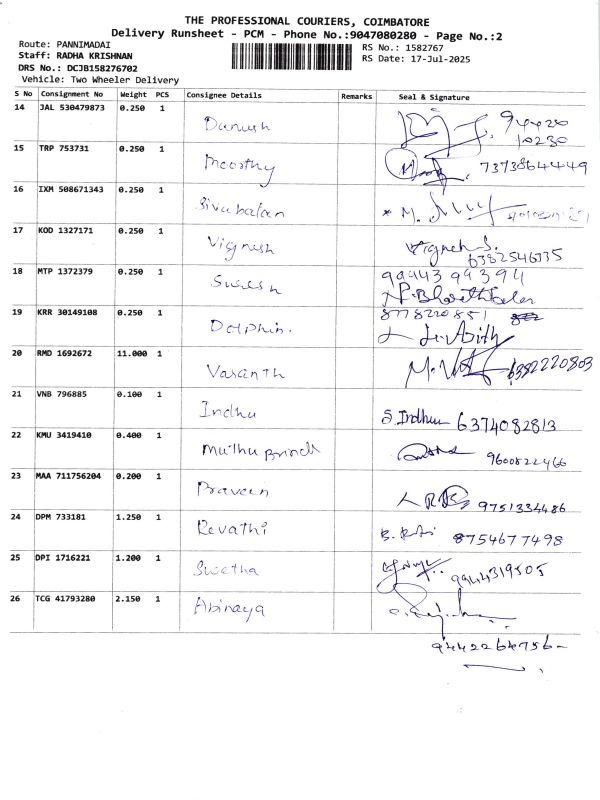 THE PROFESSIONAL COURIERS, COIMBATORE
Delivery Runsheet - PCM - Phone No.:9047080280 - Page No.:2
Route: PANNIMADAI
Staff: RADHA KRISHNAN
RS No.: 1582767
DRS No.: DCJB158276702
RS Date: 17-Jul-2025
Vehicle: Two Wheeler Delivery
S No Consignment No Weight PCS Consignee Details Remarks Seal & Signature
14 JAL 530479873 0.250 1 Danush 94420
10230
15 TRP 753731 0.250 1 Moorthy 7373864449
16 IXM 508671343 0.250 1 Sivabalan
17 KOD 1327171 0.250 1 Vignesh Vignesh S.
6382546735
18 MTP 1372379 0.250 1 Suresh 9944394394
19 KRR 30149108 0.250 1 Dolphin. 8778220851
20 RMD 1692672 11.000 1 Vasanth 6382220803
21 VNB 796885 0.100 1 Indhu S. Indhu 6374082813
22 KMU 3419410 0.400 1 Muthu 9600822466
23 MAA 711756204 0.200 1 Praveen 9751334486
24 DPM 733181 1.250 1 Revathi 8754677498
25 DPI 1716221 1.200 1 Swetha 9944319505
26 TCG 41793280 2.150 1 Abinaya
9442264756